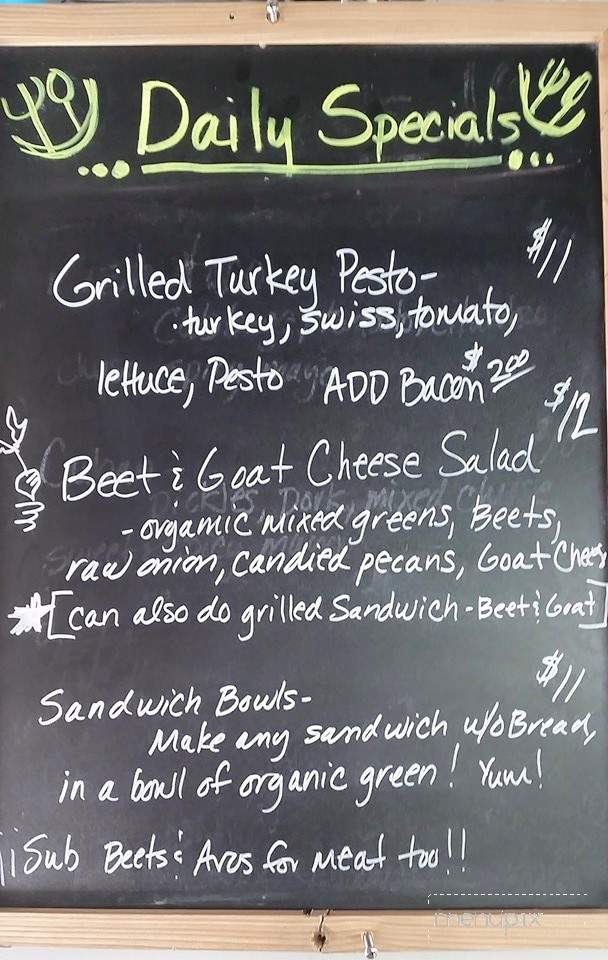 Daily Specials
$11
Grilled Turkey Pesto-
·turkey, swiss, tomato,
lettuce, Pesto ADD Bacon $2.00
$12
Beet & Goat Cheese Salad
-orgamic mixed greens, Beets,
raw onion, candied pecans, Goat Chees
*[can also do grilled Sandwich-Beet & Goat]
$11
Sandwich Bowls-
Make any sandwich w/o Bread,
in a bowl of organic green! Yum!
Sub Beets & Avos for meat too!!
menupix